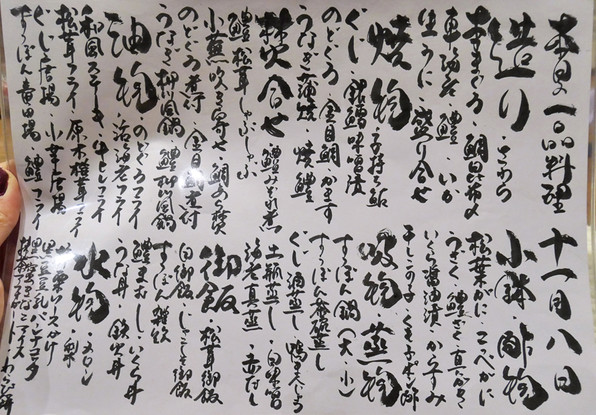 本日の一品料理
造り
さわら
本まぐろ・鯛昆布〆
車海老・鱧・いか
生うに・盛り合せ
焼物
子持ち鮎
ぐじ・銀鱈味噌漬
のどぐろ・金目鯛・かます
うなぎ蒲焼・焼鱧
焚合せ
鱧松茸しゃぶしゃぶ
小蕪吹き寄せ・鯛あら焚
のどぐろ煮付・金目鯛煮付
うなぎ柳川鍋・鱧柳川鍋
油物
のどぐろフライ
活海老フライ
和風ステーキ・牛ヒレフライ
松茸フライ・原木椎茸フライ
ぐじ唐揚・小芋唐揚
すっぽん竜田揚・鱧フライ
十一月八日
小鉢・酢物
松葉がに・こっぺがに
うざく・鱧ざく・真がき
いくら醤油漬・からすみ
干しこの子・くちこ
吸物・蒸物
すっぽん鍋(大・小)
すっぽん茶碗蒸し
ぐじ酒蒸し
土瓶蒸し・白味噌
海老真蒸・赤だし
御飯
松茸御飯
白御飯・じゃこ御飯
すっぽん雑炊
鱧まむし・いくら丼
うな丼・鉄火丼
水物
メロン
梨
黒豆豆乳パンナコッタ